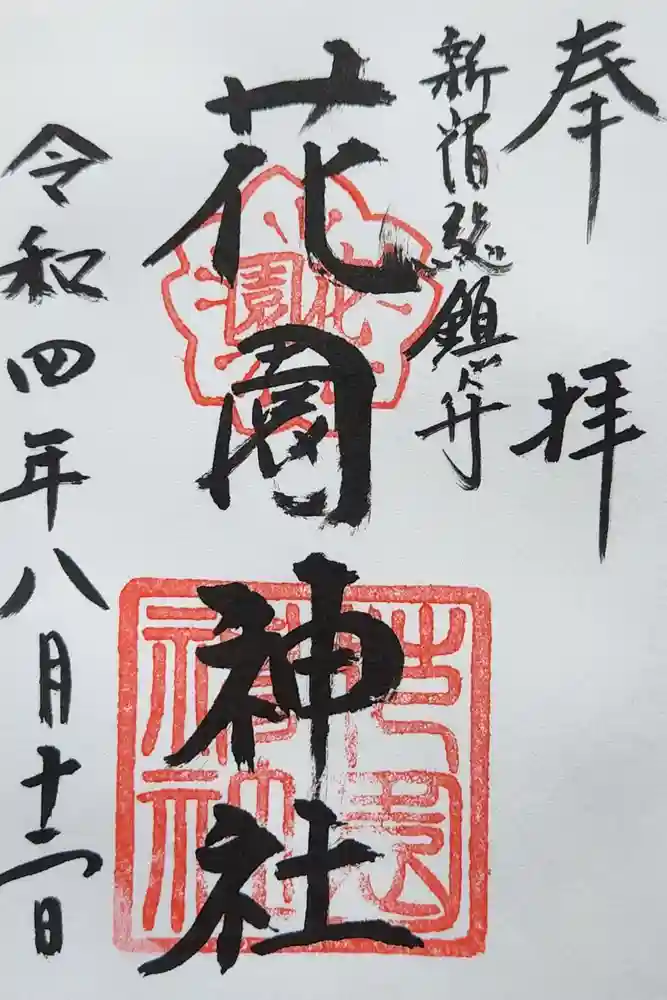 奉拝
新宿総鎮守
花園神社
令和四年八月十二日
花園
花園神社